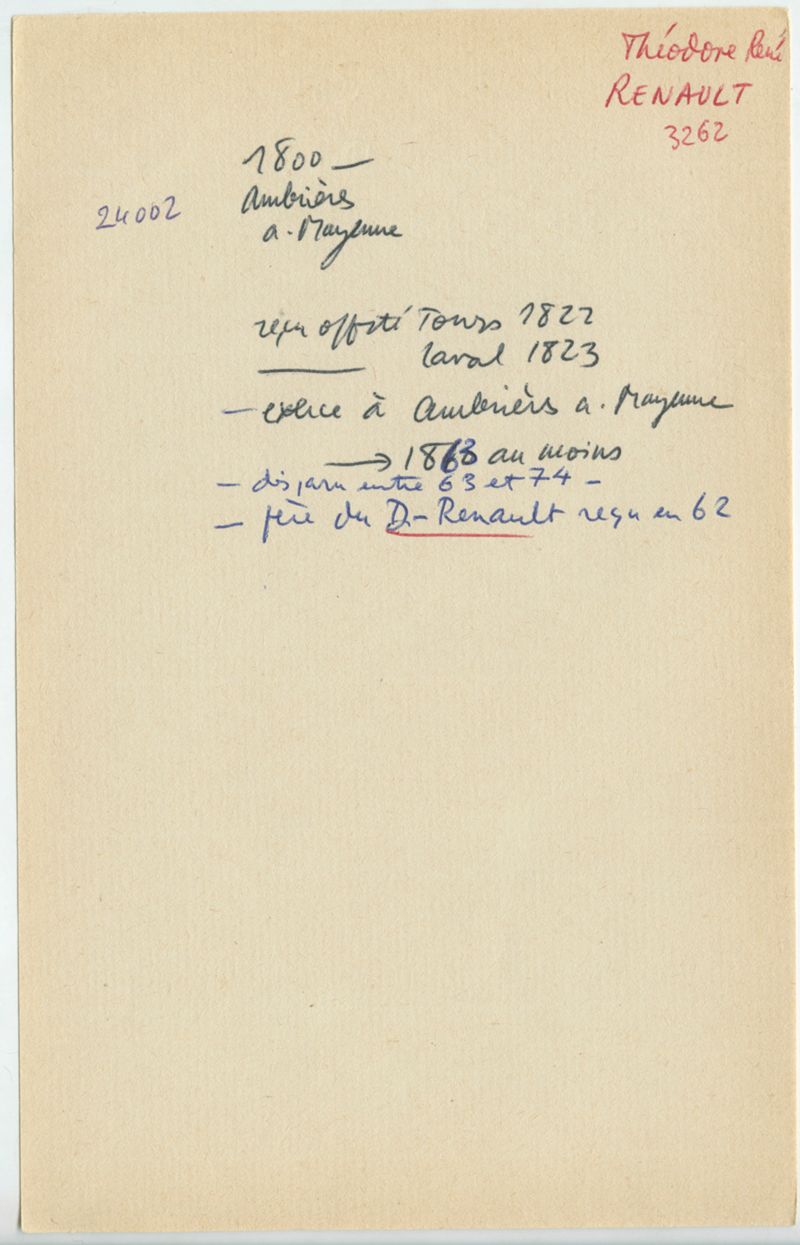 Théodore René
RENAULT
3262
1800 —
24002
Ambrières
a. Mayenne
reçu offité Tours 1822
——— Laval 1823
— exerce à Ambrières a. Mayenne
→ 1863 au moins
— disparu entre 63 et 74 —
— père du Dr Renault reçu en 62